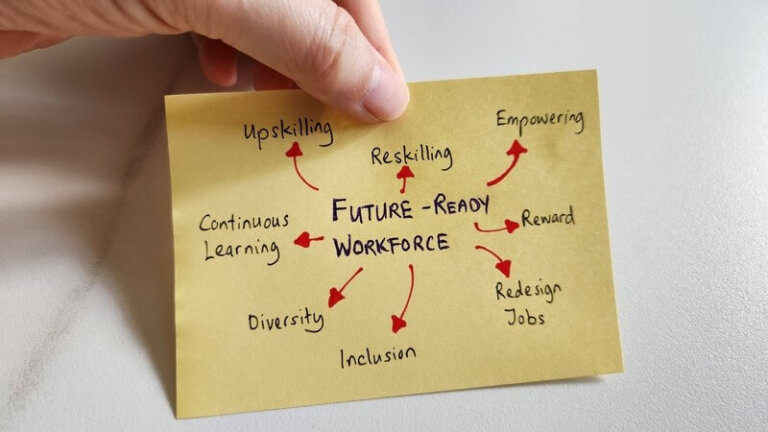 Upskilling
Reskilling
Empowering
Continuous
Learning
FUTURE-READY
WORKFORCE
Reward
Redesign
Jobs
Diversity
Inclusion